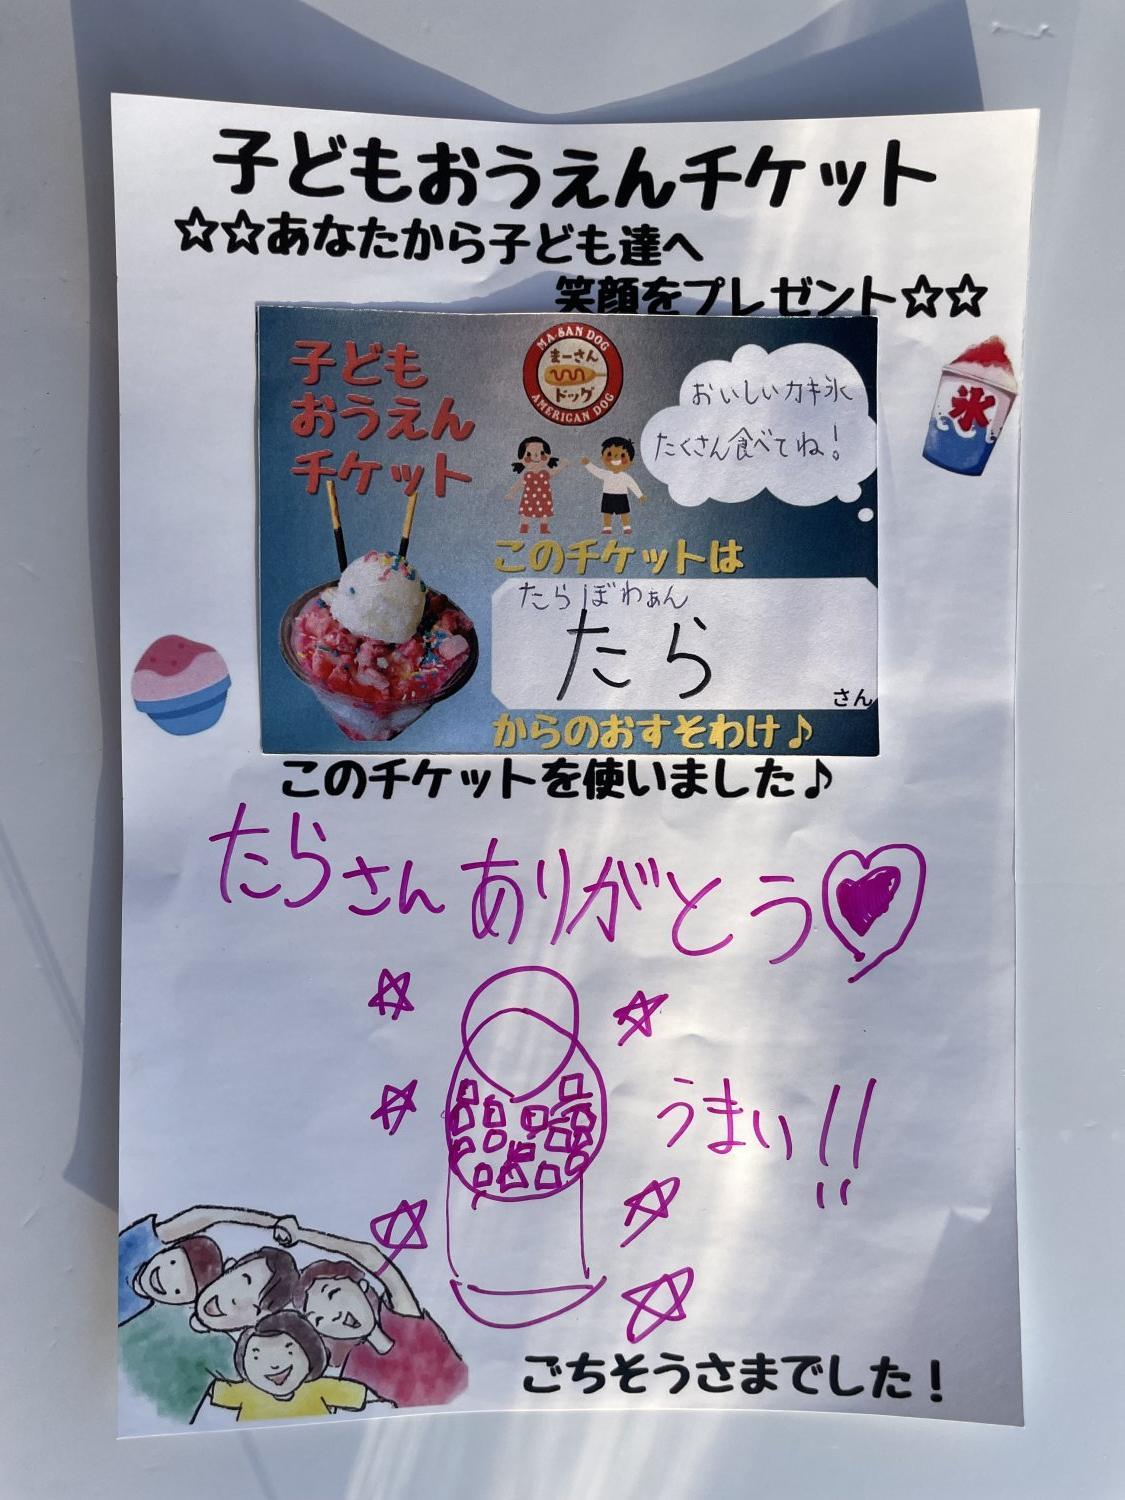 子どもおうえんチケット
☆☆あなたから子ども達へ
笑顔をプレゼント☆☆
子ども
おうえん
チケット
MA-SAN DOG
まーさん
ドッグ
AMERICAN DOG
おいしいカキ氷
たくさん食べてね!
氷
このチケットは
たらぼわぁん
たら
さん
からのおすそわけ♪
このチケットを使いました♪
たらさんありがとう
うまい!!
ごちそうさまでした!